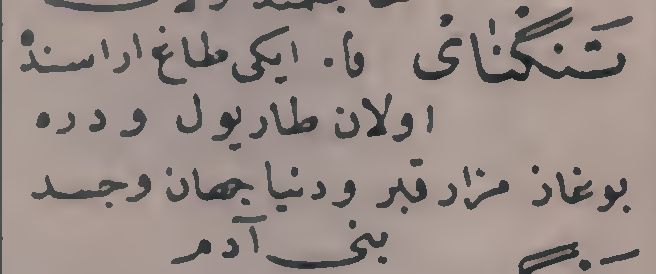 تَنگنَای فا. ایکی طاغ اراسنده
اولان طار یول و دره
بوغاز مزار قبر و دنیا جهان و جسد
بنی آدم